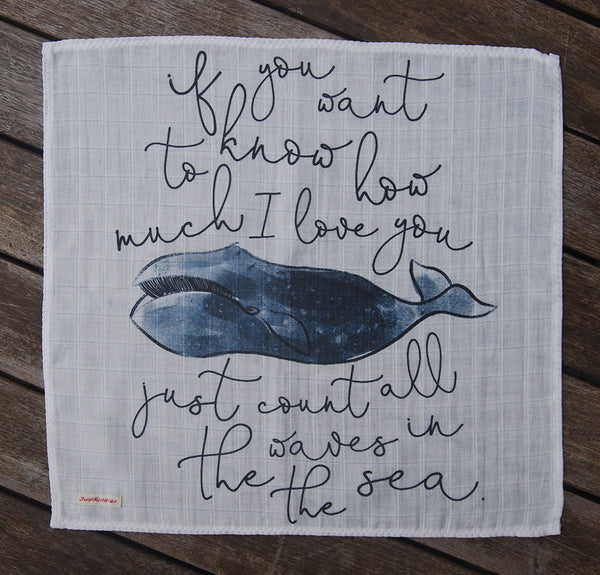 if you want
to know how
much I love you
just count all
the waves in
the sea.
JustKiddies